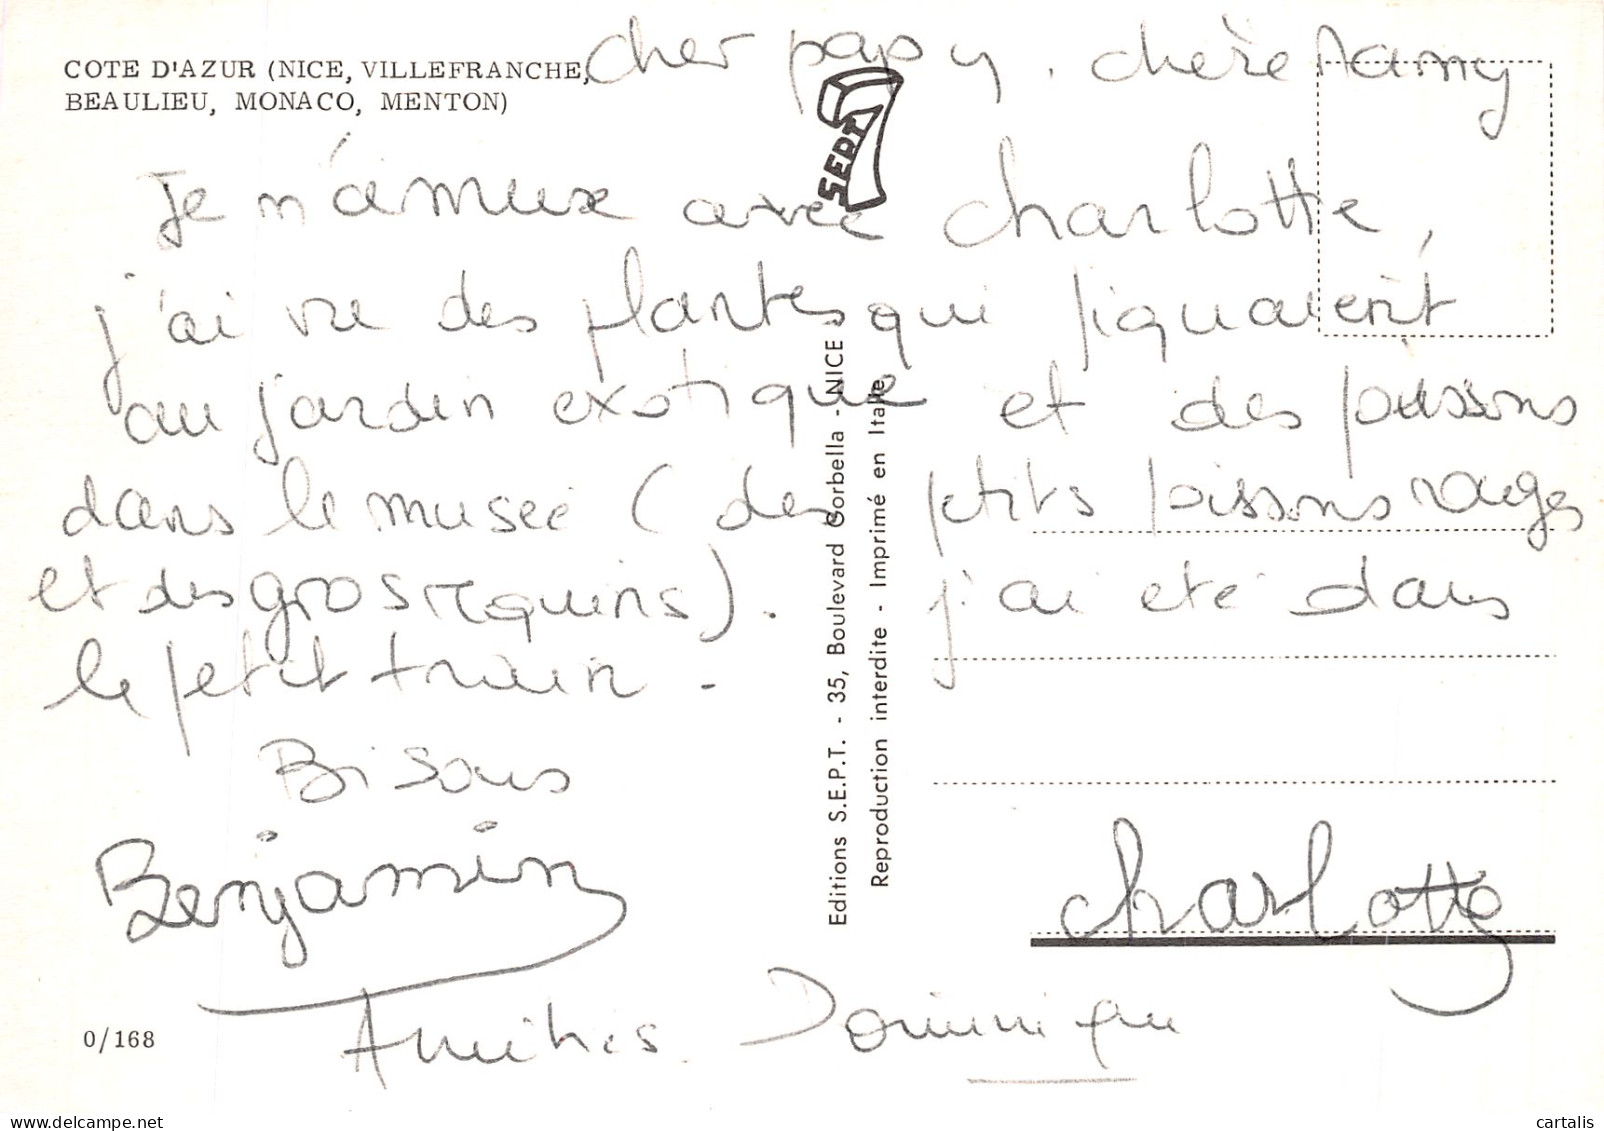 COTE D'AZUR (NICE, VILLEFRANCHE,
BEAULIEU, MONACO, MENTON)
cher papy, chère Mamy
Je m'amuse avec Charlotte,
j'ai vu des plantes qui piquaient
au jardin exotique et des poissons
dans le musée (des petits poissons rouges
et des gros requins). j'ai été dans
le petit train.
Bisous
Benjamin
charlotte
Amitiés. Dominique
0/168
SEPT
7
Editions S.E.P.T. - 35, Boulevard Gorbella - NICE
Reproduction interdite - Imprimé en Italie
cartalis.com